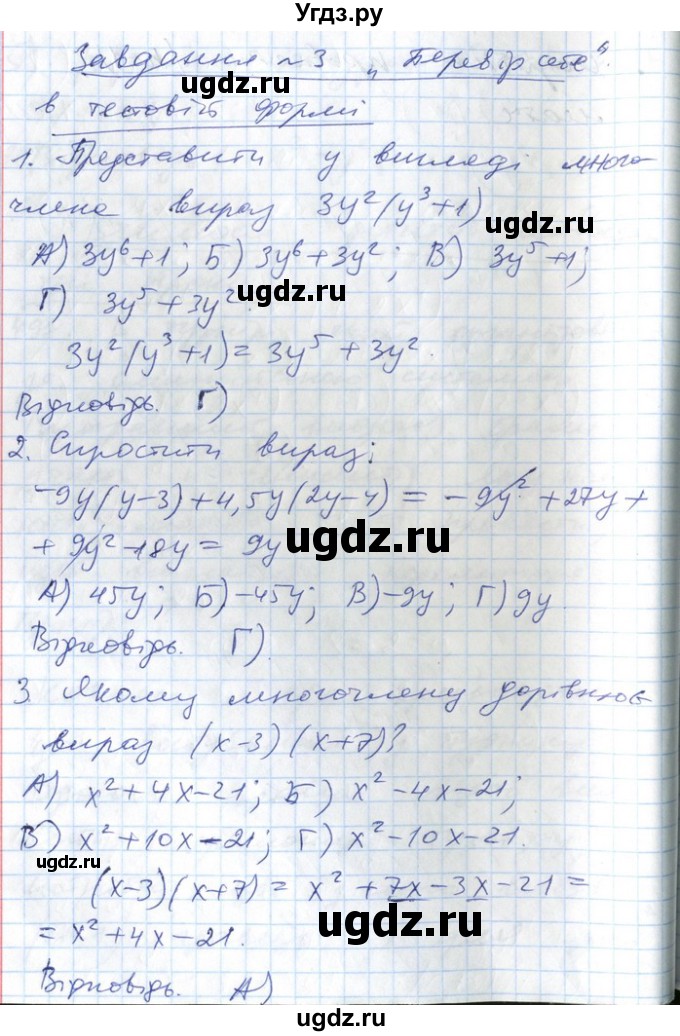 Угдз.ру
Завдання №3 „Перевір себе“.
в тестовій формі
1. Представити у вигляді много-
члена вираз 3y²(y³+1)
ugdz.ru
ugdz.ru
А) 3y⁶+1; Б) 3y⁶+3y²; В) 3y⁵+1;
ugdz.ru
Г) 3y⁵+3y².
3y²(y³+1)=3y⁵+3y².
Відповідь. Г)
ugdz.ru
2. Спростити вираз:
-9y(y-3)+4,5y(2y-4)=-9y²+27y+
+9y²-18y=9y
ugdz.ru
А) 45y; Б) -45y; В) -9y; Г) 9y
ugdz.ru
Відповідь. Г).
3. Якому многочлену дорівнює
вираз (x-3)(x+7)?
ugdz.ru
А) x²+4x-21; Б) x²-4x-21;
В) x²+10x-21; Г) x²-10x-21.
ugdz.ru
(x-3)(x+7)=x²+7x-3x-21=
=x²+4x-21.
ugdz.ru
Відповідь. А)
ugdz.ru